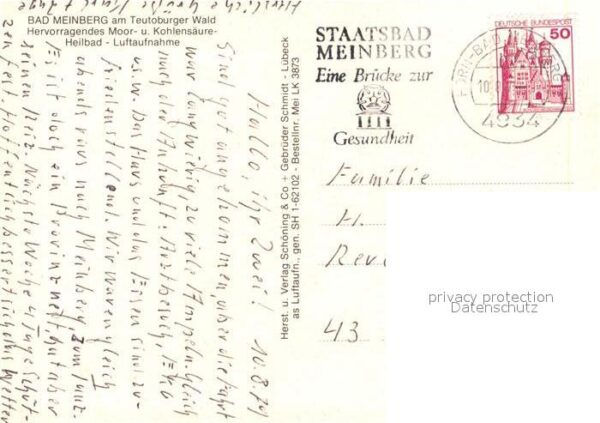 BAD MEINBERG am Teutoburger Wald
Hervorragendes Moor- u. Kohlensäure-
Heilbad - Luftaufnahme
Herzliche Grüße
10.8.79
Hallo, ihr Zwei!
Sind gut angekommen, aber die Fahrt
war langwierig, zu viele Ampeln. Gleich
nach der Ankunft. Arztbesuch, EKG
u.s.w. Das Haus und das Essen sind zu-
friedenstellend. Wir waren gleich
abends raus nach Meinberg, zum Tanz.
Es ist doch ein Provinznest, hat aber
seinen Reiz. Nächste Woche 4 Tage Schüt-
zenfest. Hoffentlich bessert sich das Wetter
Herst. u. Verlag Schöning & Co + Gebrüder Schmidt - Lübeck
als Luftaufn., gen. SH 1-62102 - Bestellnr. Mei LK 3873
STAATSBAD
MEINBERG
Eine Brücke zur
Gesundheit
DEUTSCHE BUNDESPOST
50
4934
Familie
H.
43
privacy protection
Datenschutz